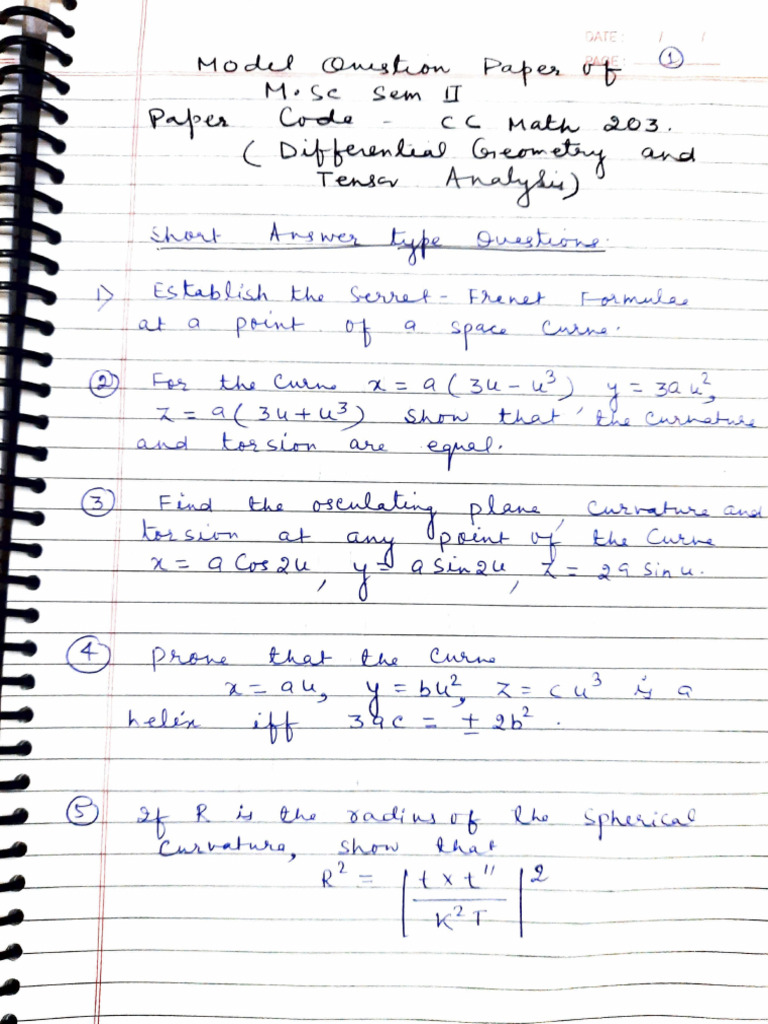 DATE: / /
PAGE: 1
Model Question Paper of
M.Sc Sem II
Paper Code - CC Math 203.
( Differential Geometry and
Tensor Analysis)
Short Answer type Questions.
1) Establish the Serret-Frenet Formulae
at a point of a space curve.
2 For the curve x = a(3u - u³) y = 3au²,
z = a(3u + u³) show that the curvature
and torsion are equal.
3 Find the osculating plane, curvature and
torsion at any point of the curve
x = a Cos 2u, y = a Sin 2u, z = 2a Sin u.
4 Prove that the curve
x = au, y = bu², z = cu³ is a
helix iff 3ac = ± 2b².
5 If R is the radius of the spherical
curvature, show that
R² = | t × t'' / K² T |²